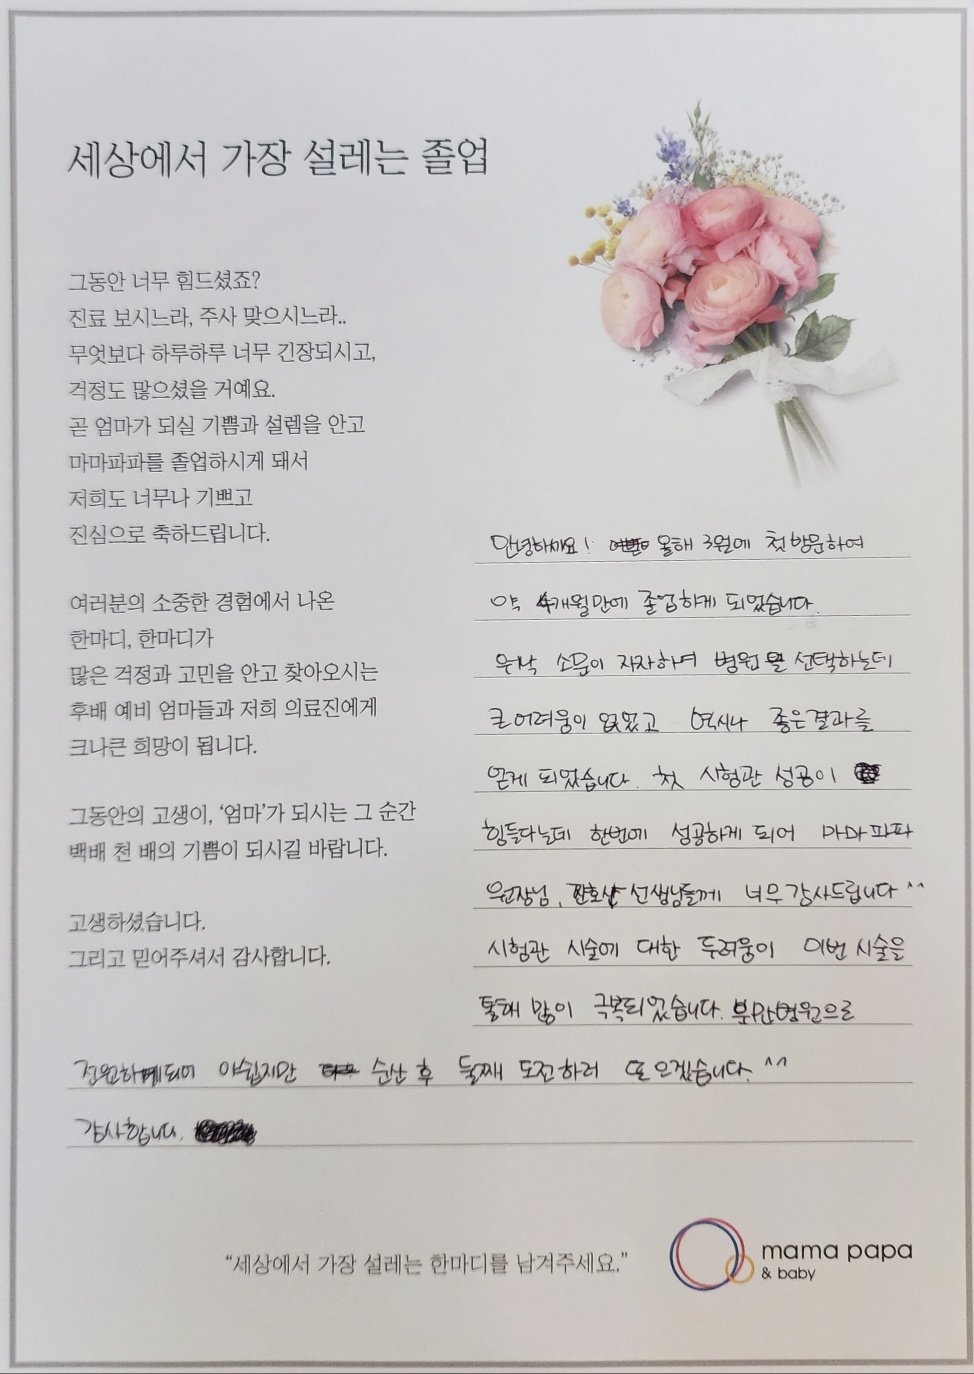 세상에서 가장 설레는 졸업
그동안 너무 힘드셨죠?
진료 보시느라, 주사 맞으시느라..
무엇보다 하루하루 너무 긴장되시고,
걱정도 많으셨을 거예요.
곧 엄마가 되실 기쁨과 설렘을 안고
마마파파를 졸업하시게 돼서
저희도 너무나 기쁘고
진심으로 축하드립니다.
여러분의 소중한 경험에서 나온
한마디, 한마디가
많은 걱정과 고민을 안고 찾아오시는
후배 예비 엄마들과 저희 의료진에게
크나큰 희망이 됩니다.
그동안의 고생이, ‘엄마’가 되시는 그 순간
백배 천 배의 기쁨이 되시길 바랍니다.
고생하셨습니다.
그리고 믿어주셔서 감사합니다.
안녕하세요! 올해 3월에 첫 방문하여
약 4개월만에 졸업하게 되었습니다.
워낙 소문이 자자하여 병원을 선택하는데
큰 어려움이 없었고 역시나 좋은 결과를
얻게 되었습니다. 첫 시험관 성공이
힘들다는데 한번에 성공하게 되어 마마파파
원장님, 간호사 선생님들께 너무 감사드립니다^^
시험관 시술에 대한 두려움이 이번 시술을
통해 많이 극복되었습니다. 분만병원으로
전원하게되어 아쉽지만 순산 후 둘째 도전하러 또 오겠습니다.^^
감사합니다.
“세상에서 가장 설레는 한마디를 남겨주세요.”
mama papa
& baby